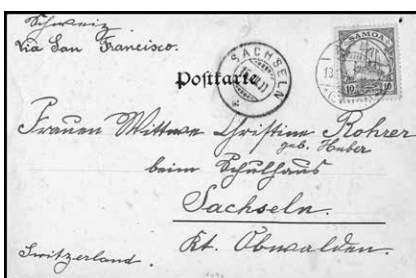 Schweiz
Via San Francisco.
SACHSELN
Postkarte
SAMOA
10 10
Frauen Wittwe Christine Rohrer
geb. Huber
beim Schulhaus
Sachseln.
Kt. Obwalden.
Switzerland.